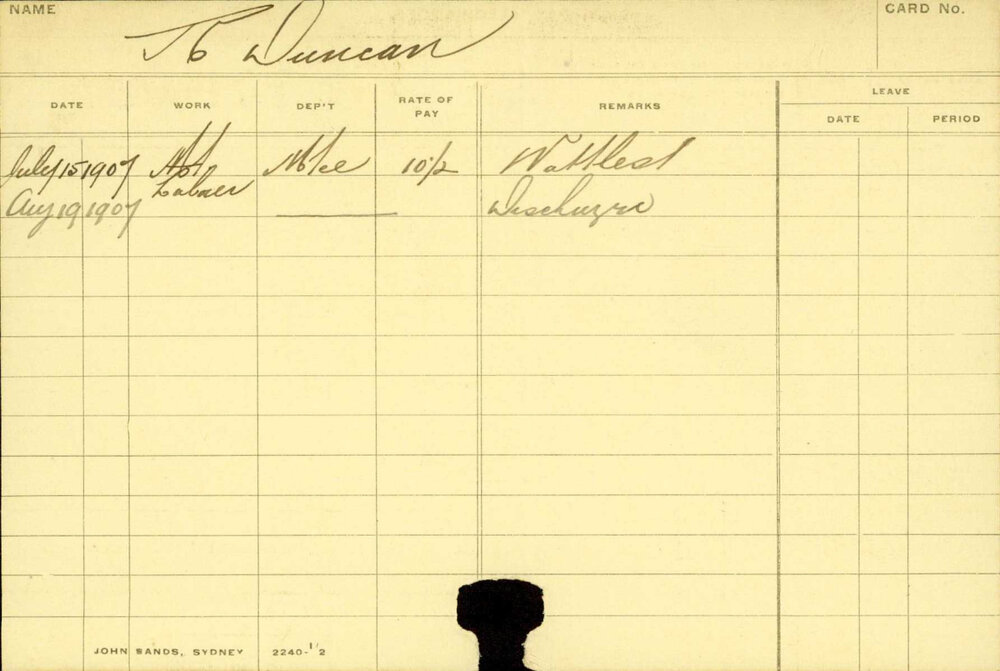 NAME
CARD No.
Duncan
DATE
WORK
DEP'T
RATE OF PAY
REMARKS
LEAVE
DATE
PERIOD
July 15 1907 Mtce 10/2
Labour
Aug 19 1907
JOHN SANDS, SYDNEY 2240-1/2